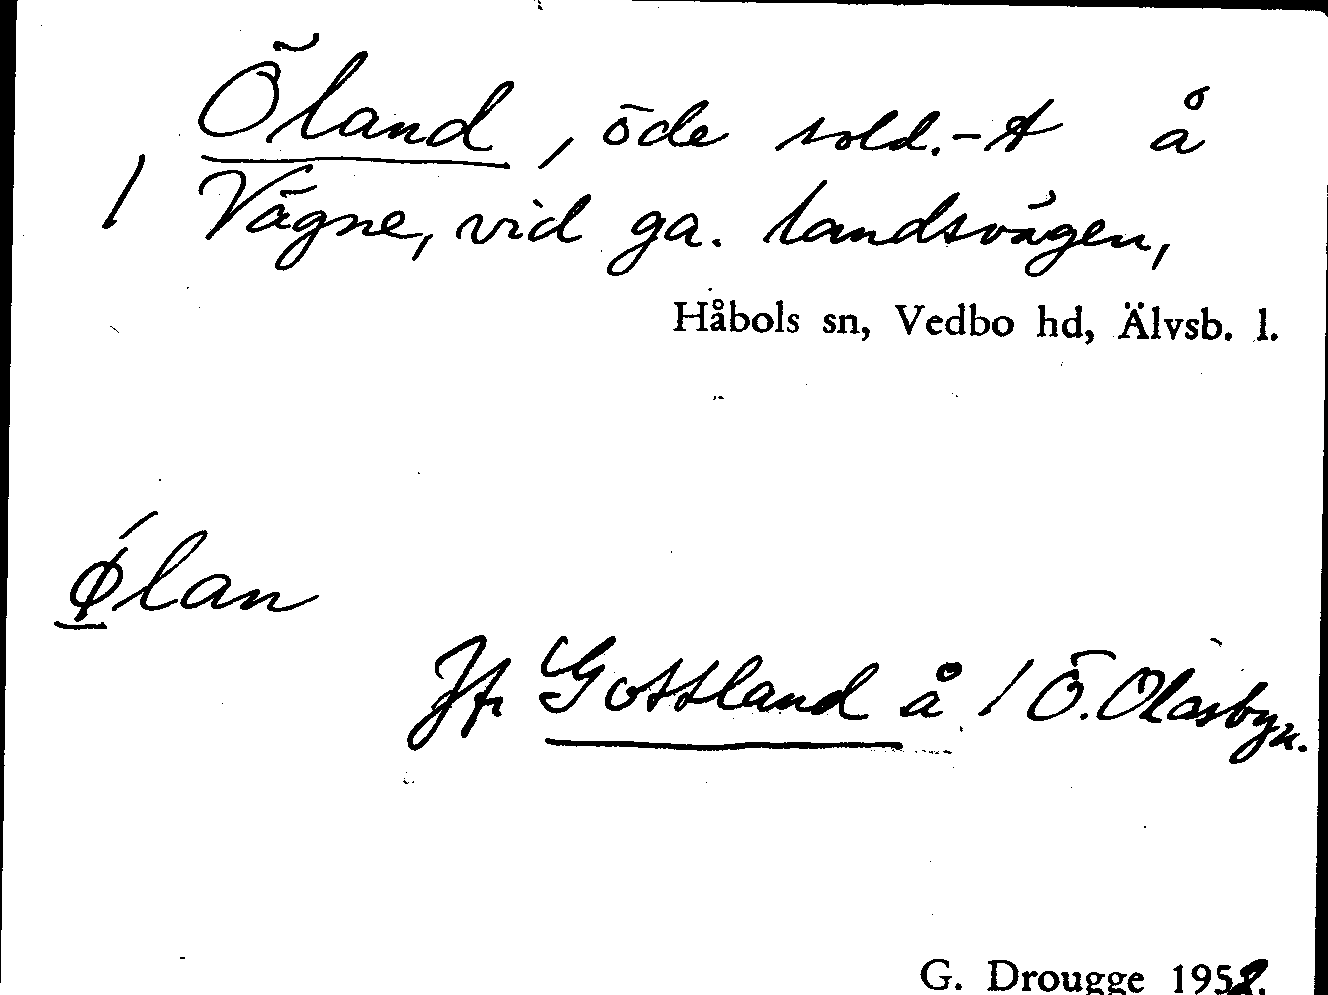 Öland, öde sold.-t å
/ Vägne, vid ga. landsvägen,
Håbols sn, Vedbo hd, Älvsb. l.
ǿlan
Jfr Gottland å / Ö. Olasbyn.
G. Drougge 1952.